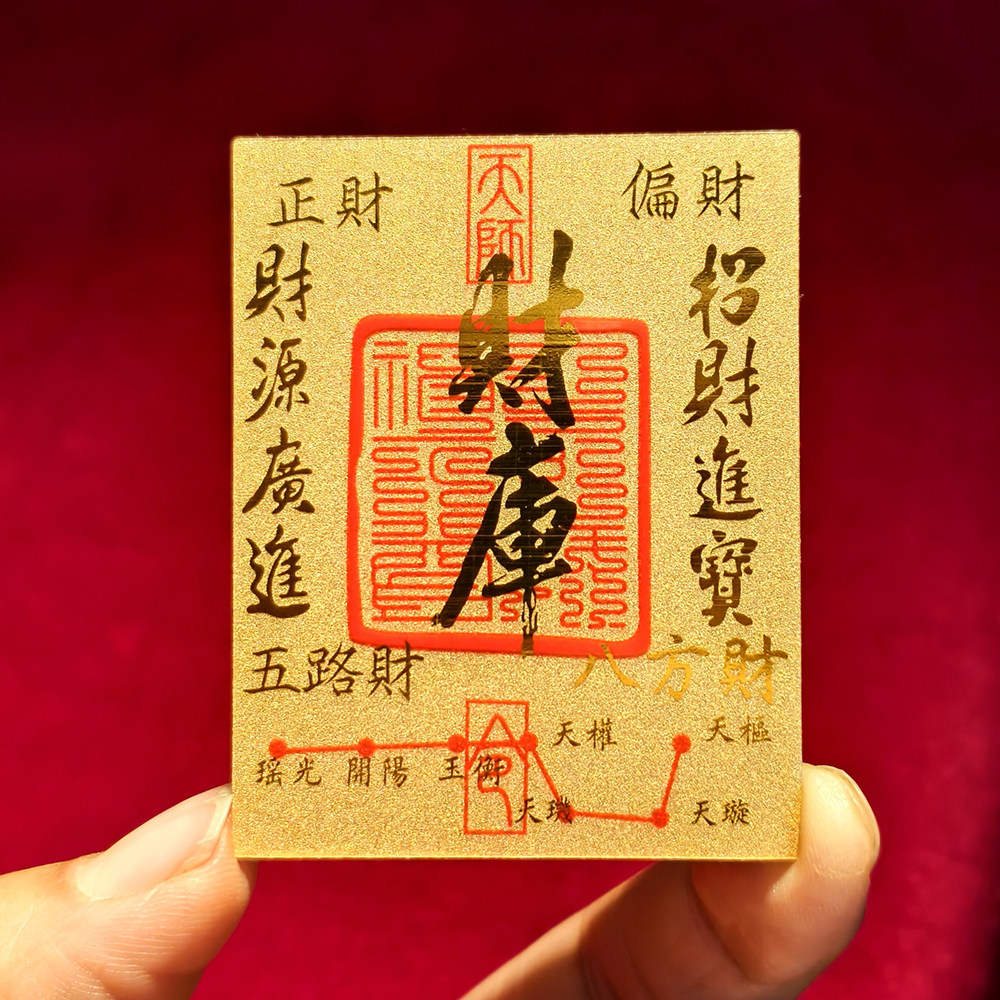 正財
偏財
天師
財庫
財源廣進
招財進寶
五路財
八方財
天權
天樞
瑶光
開陽
玉衡
天璣
天璇
令